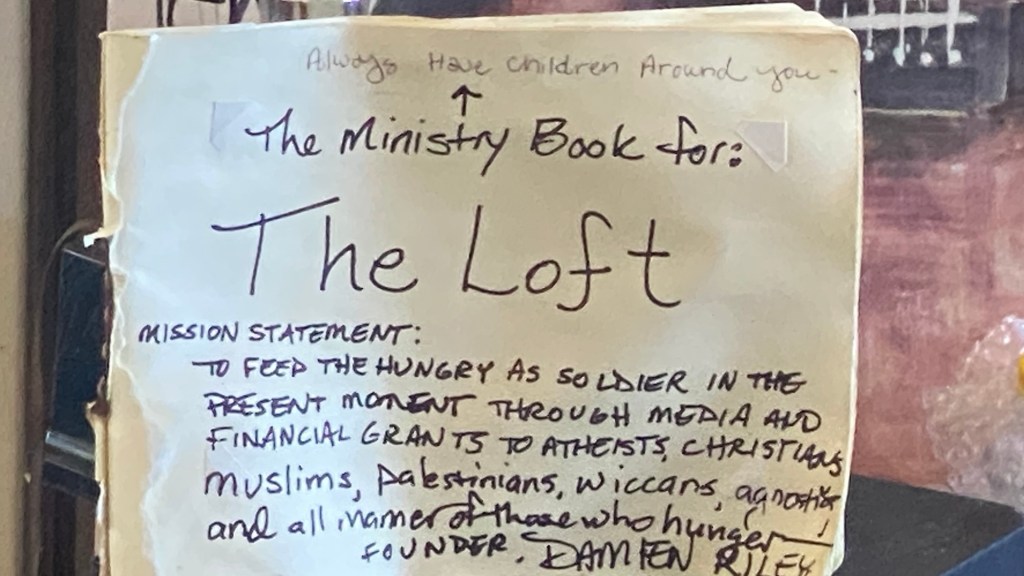 Always Have children Around you-
The Ministry Book for:
The Loft
MISSION STATEMENT:
TO FEED THE HUNGRY AS SOLDIER IN THE
PRESENT MOMENT THROUGH MEDIA AND
FINANCIAL GRANTS TO ATHEISTS, CHRISTIANS
muslims, palestinians, wiccans, agnostics
and all manner of those who hunger!
FOUNDER. DAMIEN RILEY